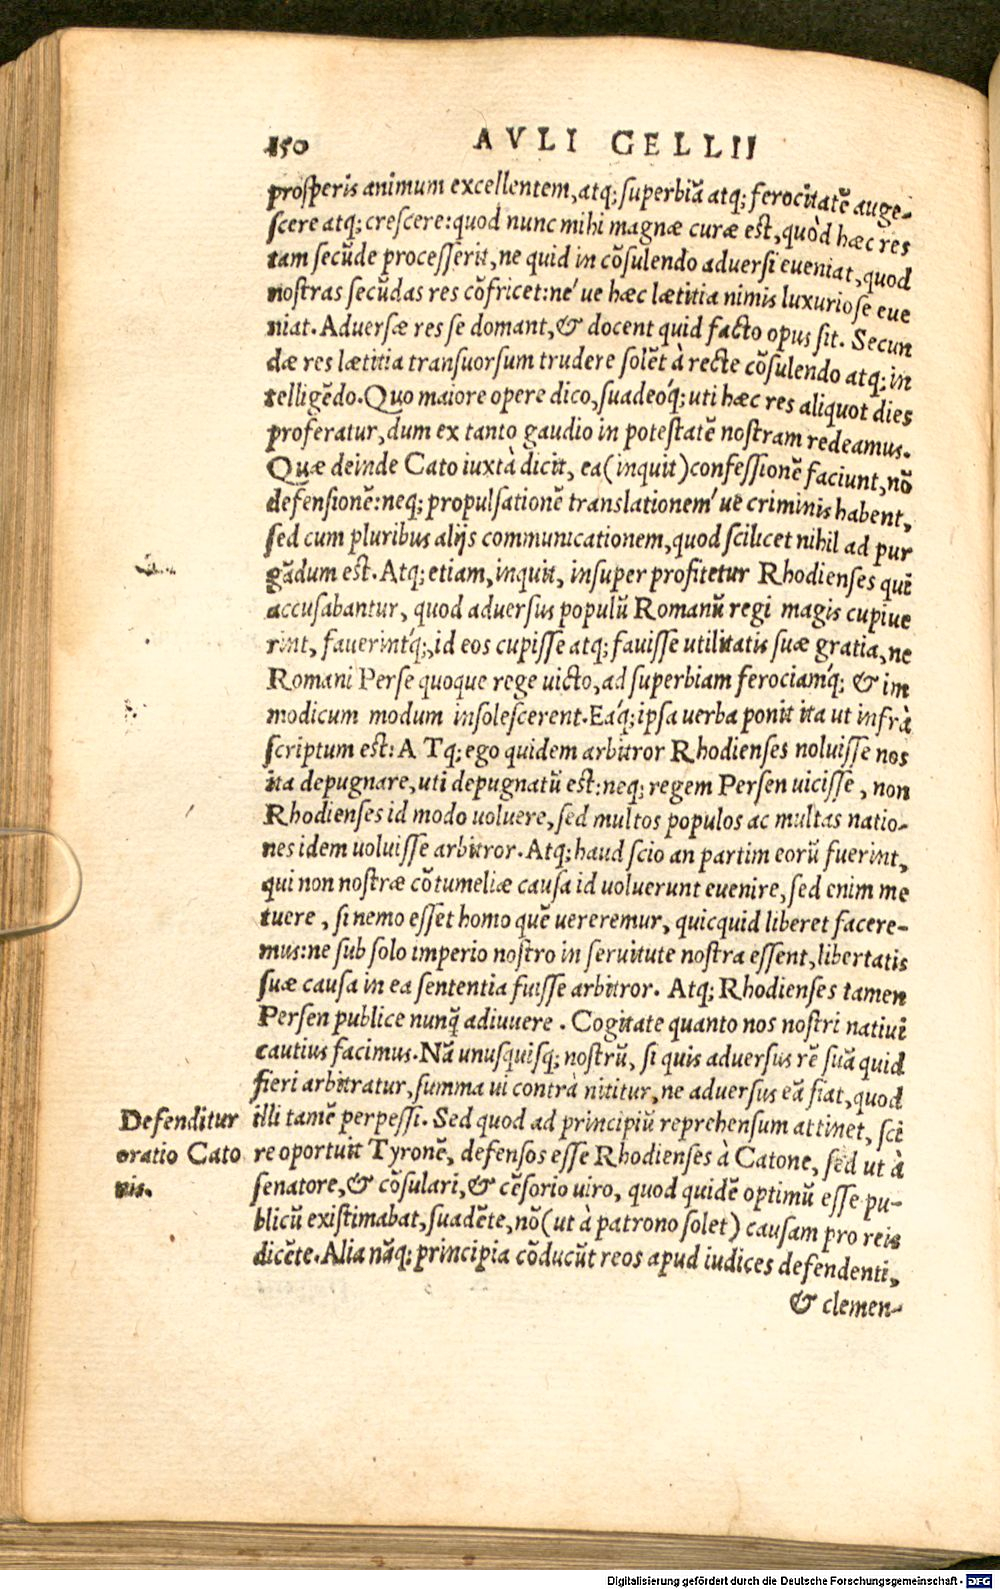 150 AVLI GELLII
prosperis animum excellentem, atq; superbiã atq; ferocitatẽ auge-
scere atq; crescere: quod nunc mihi magnæ curæ est, quòd hæc res
tam secũde processerit, ne quid in cõsulendo adversi eueniat, quod
nostras secũdas res cõfricet: né ue hæc lætitia nimis luxuriose eue
niat. Adversæ res se domant, & docent quid facto opus sit. Secun
dæ res lætitia transuorsum trudere solẽt à recte cõsulendo atq; in
telligẽdo. Quo maiore opere dico, suadeoq́; uti hæc res aliquot dies
proferatur, dum ex tanto gaudio in potestatẽ nostram redeamus.
Quæ deinde Cato iuxtà dicit, ea (inquit) confessionẽ faciunt, nõ
defensionẽ: neq; propulsationẽ translationem´ue criminis habent,
sed cum pluribus alijs communicationem, quod scilicet nihil ad pur
gãdum est. Atq; etiam, inquit, insuper profitetur Rhodienses quĩ
accusabantur, quod adversus populũ Romanũ regi magis cupiue
rint, fauerintq́;, id eos cupisse atq; fauisse utilitatis suæ gratia, ne
Romani Perse quoque rege uicto, ad superbiam ferociamq́; & im
modicum modum insolescerent. Eaq́; ipsa uerba ponit ita ut infrà
scriptum est: ATq; ego quidem arbitror Rhodienses noluisse nos
ita depugnare, uti depugnatũ est: neq; regem Persen uicisse, non
Rhodienses id modo uoluere, sed multos populos ac multas natio-
nes idem uoluisse arbitror. Atq; haud scio an partim eorũ fuerint,
qui non nostræ cõtumeliæ causa id uoluerunt euenire, sed enim me
tuere, si nemo esset homo quẽ uereremur, quicquid liberet facere-
mus: ne sub solo imperio nostro in seruitute nostra essent, libertatis
suæ causa in ea sententia fuisse arbitror. Atq; Rhodienses tamen
Persen publice nunq̃ adiuuere. Cogitate quanto nos nostri natiui
cautius facimus. Nã unusquisq; nostrũ, si quis adversus rẽ suã quid
fieri arbitratur, summa ui contrà nititur, ne adversus eã fiat, quod
illi tamẽ perpessi. Sed quod ad principiũ reprehensum attinet, scĩ
re oportuit Tyronẽ, defensos esse Rhodienses à Catone, sed ut à
senatore, & cõsulari, & cẽsorio uiro, quod quidẽ optimũ esse pu-
blicũ existimabat, suadẽte, nõ (ut à patrono solet) causam pro reis
dicẽte. Alia nãq; principia cõducũt reos apud iudices defendenti,
& clemen-
Defenditur
oratio Cato
nis.
Digitalisierung gefördert durch die Deutsche Forschungsgemeinschaft - DFG